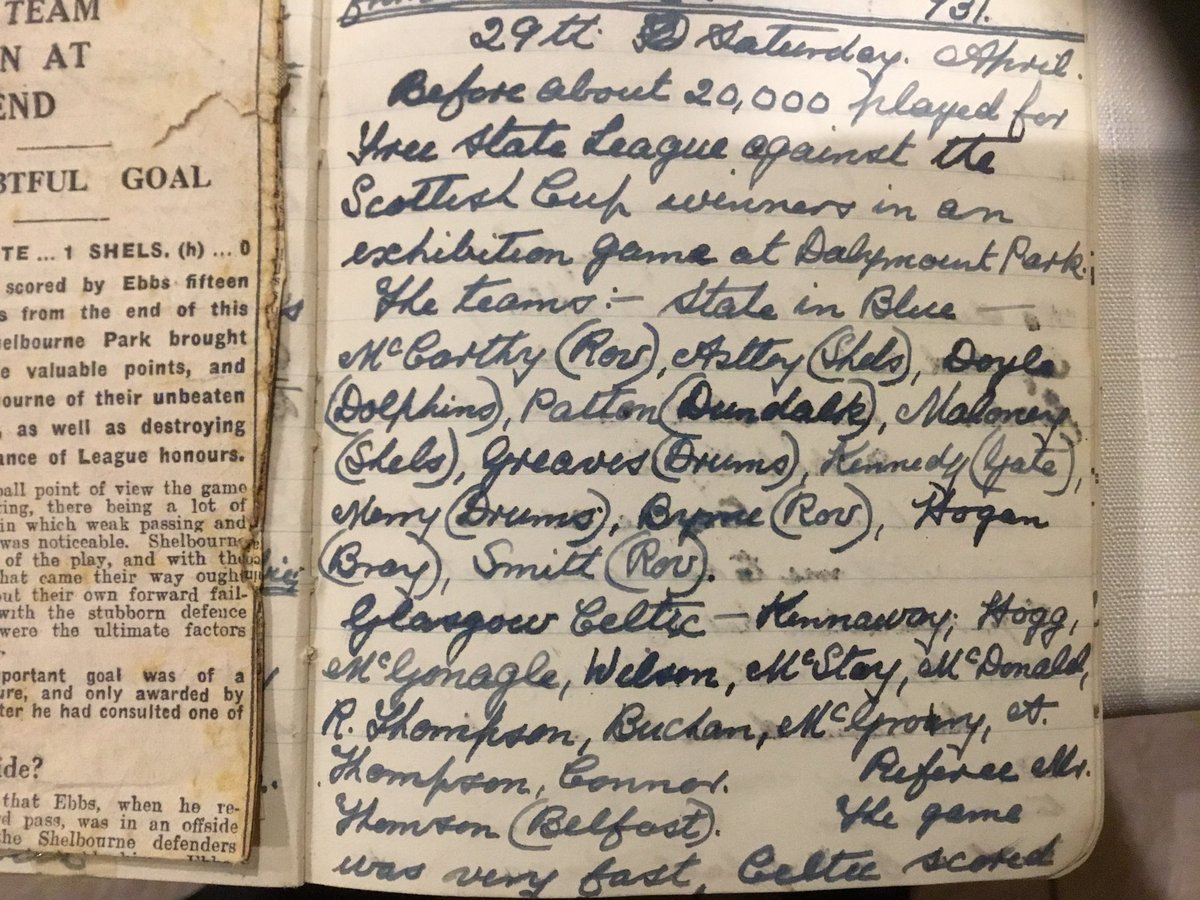 TEAM
N AT
END
BTFUL GOAL
TE ... 1 SHELS. (h) ... 0
scored by Ebbs fifteen
s from the end of this
elbourne Park brought
e valuable points, and
ourne of their unbeaten
, as well as destroying
ance of League honours.
ball point of view the game
ring, there being a lot of
in which weak passing and
was noticeable. Shelbourne
of the play, and with the
hat came their way ought
but their own forward fail-
with the stubborn defence
were the ultimate factors
portant goal was of a
ure, and only awarded by
ter he had consulted one of
ide?
that Ebbs, when he re-
d pass, was in an offside
the Shelbourne defenders
131.
29th Saturday. April.
Before about 20,000 played for
Free State League against the
Scottish Cup winners in an
exhibition game at Dalymount Park.
The teams:- State in Blue —
McCarthy (Rov), Astley (Shels), Doyle
(Dolphins), Patton (Dundalk), Maloney
(Shels), Greaves (Drums), Kennedy (Gate),
Merry (Drums), Byrne (Rov), Hogan
(Bray), Smith (Rov).
Glasgow Celtic — Kennaway, Hogg,
McGonagle, Wilson, McStay, McDonald,
R. Thompson, Buchan, McGrory, A.
Thompson, Connor. Referee Mr.
Thomson (Belfast). The game
was very fast, Celtic scored